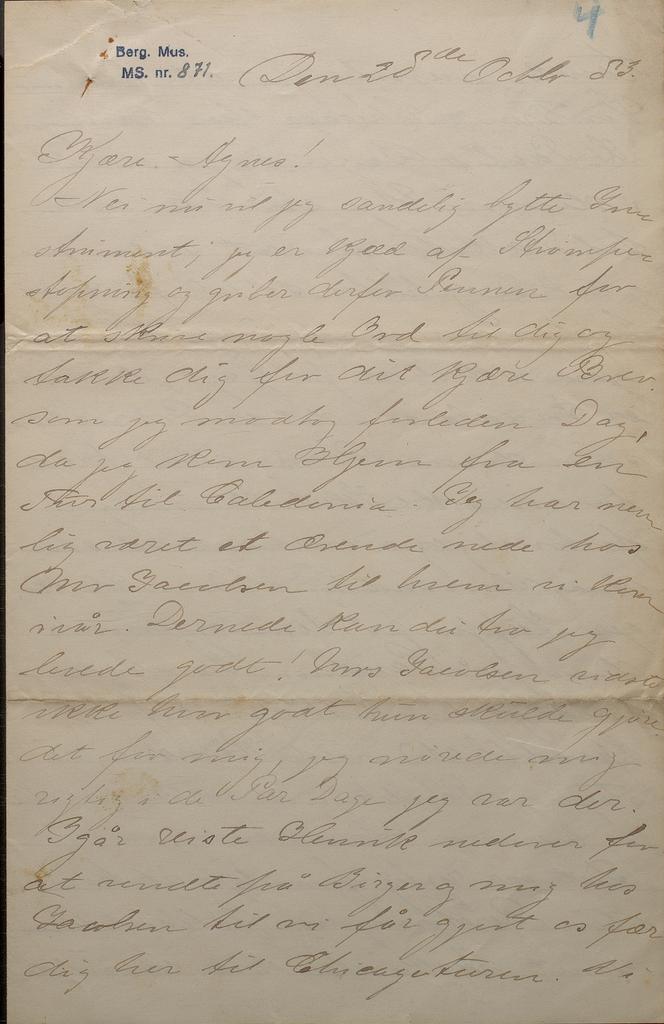 4
Berg. Mus.
MS. nr. 871.
Den 28de Octbr 83.
Kjære Agnes!
Nei nu vil jeg sandelig bytte In-
strument; jeg er kjed af Strømpe-
stopning og griber derfor Pennen for
at skrive nogle Ord til dig og
takke dig for dit kjære Brev,
som jeg modtog forleden Dag,
da jeg kom Hjem fra en
Tur til Caledonia. Jeg har nem
lig været et Ærende nede hos
Mr Jacobsen til hvem vi kom
ivår. Dernede kan du tro jeg
levede godt! Mrs Jacobsen vidste
ikke hvor godt hun skulde gjøre
det for mig, jeg mig
rigtig i de Par Dage jeg var der.
Igår reiste Henrik nedover for
at vendte på Birger og mig hos
Jacobsen til vi får gjort os fær
dig her til Chicagoturen. Vi